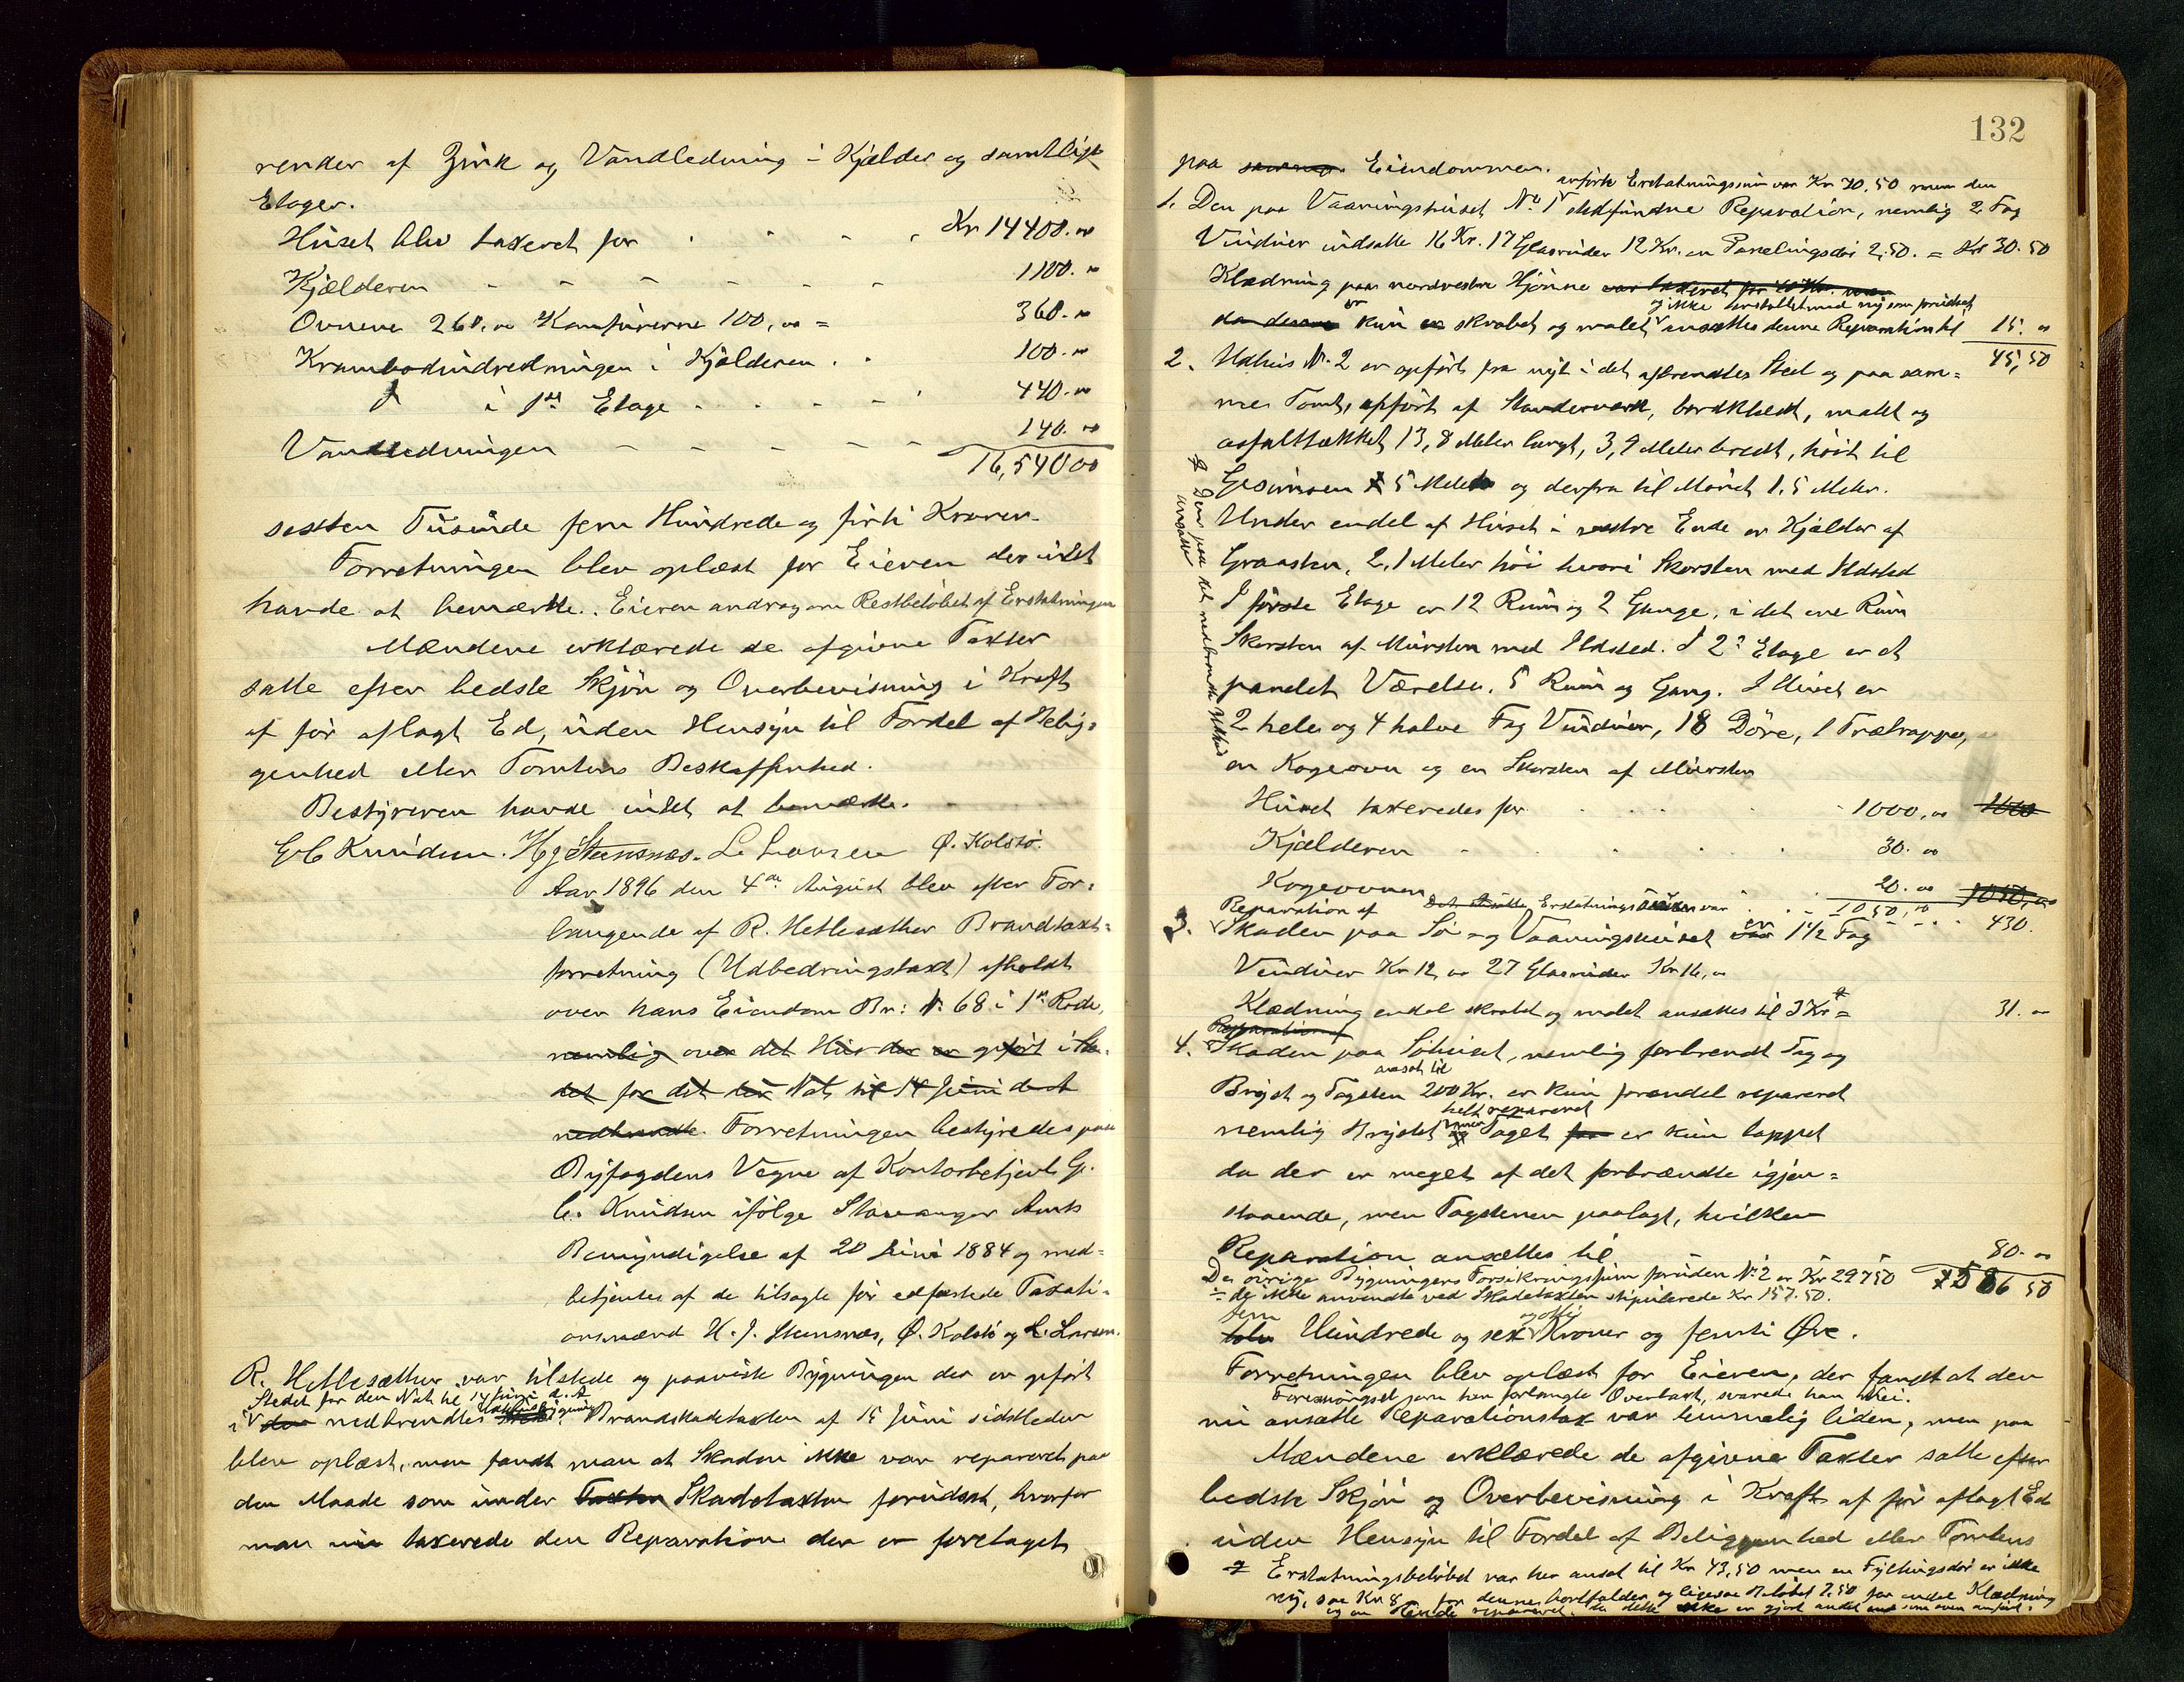 render af Zink og Vandledning i Kjælder og samtlige
Etager.
Huset blev taxeret for Kr 14400.00
Kjælderen 1100.00
Ovnene 260,00 Komfurerne 100,00 = 360.00
Krambodindredningen i Kjælderen 100.00
i 1ste Etage 440.00
Vandledningen 140.00
16,540 00
sexten Tusinde fem Hundrede og firti Kroner
Forretningen blev oplæst for Eieren der intet
havde at bemærke. Eieren androg om Restbeløbet af Erstatningen
Mændene erklærede de afgivne Taxter
satte efter bedste Skjøn og Overbevisning i Kraft
af før aflagt Ed, uden Hensyn til Fordel af Belig=
genhed eller Tomtens Beskaffenhed.
Bestyreren havde intet at bemærke.
G. C. Knudsen. H J Stensnæs. L. Larsen Ø. Kolstø.
Aar 1896 den 4de August blev efter For=
langende af R. Hetlesæther Brandtaxt=
forretning (Udbedringstaxt) afholdt
over hans Eiendom Br: N. 68 i 1ste Rode,
nemlig over det Hus der er opført i Ste=
det for det Nat til 14 Juni
nedbrændte. Forretningen bestyredes paa
Byfogdens Vegne af Kontorbetjent G.
C. Knudsen ifølge Stavanger Amts
Bemyndigelse af 20 Juni 1884 og med=
betjentes af de tilsagte før edfæstede Taxati=
onsmænd H. J. Stensnæs, Ø. Kolstø og L. Larsen.
R. Hetlesæther var tilstede og paaviste Bygningen der er opført
Stedet for den Nat til 14 Juni d. A.
i nedbrendte Brandskadetaxten af 15 Juni sidstleden
blev oplæst, men fandt man at Skaden ikke var repareret paa
den Maade som under Taxten Skadetaxten forudsat, hvorfor
man nu taxerede den Reparation der er foretaget
132
paa Eiendommen.
anførte Erstatningssum var Kr 70.50 men den
1. Den paa Vaaningshuset No 1 stedfundne Reparation, nemlig 2 Fag
Vinduer indsatte 16 Kr. 17 Glasruder 12 Kr. en Panelingsdør 2.50. = Kr 30.50
Klædning paa nordvestre Hjørne var taxeret for Kr. men
og ikke erstattet med ny som forudsat,
da denne er kun skrabet og malet ansættes denne Reparation til 15.00
45,50
2. Udhus N. 2 er opført fra nyt i det afbrendtes Sted og paa sam=
me Tomt, opført af Standerværk, bordklædt, malet og
asfalttækket, 13,8 Meter langt, 3,9 Meter bredt, høit til
Gesimsen 5 Meter og derfra til Mønet 1.5 Meter.
Under endel af Huset i vestre Ende er Kjælder af
Graasten, 2,1 Meter høi hvori Skorsten med Ildsted
I første Etage er 12 Rum og 2 Gange, i det ene Rum
Skorsten af Mursten med Ildsted. I 2. Etage er et
panelet Værelse, 5 Rum og Gang. I Huset er
2 hele og 4 halve Fag Vinduer, 18 Døre, 1 Trætrappe,
en Kogeovn og en Skorsten af Mursten
Den paa det nedbrændte Udhus
ansatte
Huset taxeredes for 1000,00 1000
Kjælderen 30.00
Kogeovnen 20.00
Erstatningssum var 1050,00 1050,00
430.
Reparation af
3. Skaden paa Sø- og Vaaningshuset er 1½ Fag
Vinduer Kr 12,00 27 Glasruder Kr 16,00
Klædning endel skrabet og malet ansættes til 3 Kr = 31.00
Reparation af
4. Skaden paa Søhuset, nemlig forbrendt Tag og
ansat til
Bryst og Tagsten 200 Kr. er kun forendel repareret
helt repareret
nemlig Brystet men Taget er kun lappet
da der er meget af det forbrændte igjen=
staaende, men Tagstenen paalagt, hvilken
Reparation ansættes til 80.00
De øvrige Bygningers Forsikringssum foruden N. 2 er Kr 29750 586 50
÷ de ikke anvendte ved Skadetaxten stipulerede Kr 157.50.
fem Hundrede og sex og otti Kroner og femti Øre.
Forretningen blev oplæst for Eieren, der fandt at den
nu ansatte Reparationstax var temmelig liden, men paa
Forespørgsel om han forlangte Overtaxt, svarede han Nei.
Mændene erklærede de afgivne Taxter satte efter
bedste Skjøn og Overbevisning i Kraft af før aflagt Ed
uden Hensyn til Fordel af Beliggenhed eller Tomtens
Erstatningsbeløbet var her ansat til Kr 43,50 men en Fyldingsdør er ikke
ny, saa Kr 8 for denne bortfalder og ligesaa Beløbet 7,50 for endel Klædning